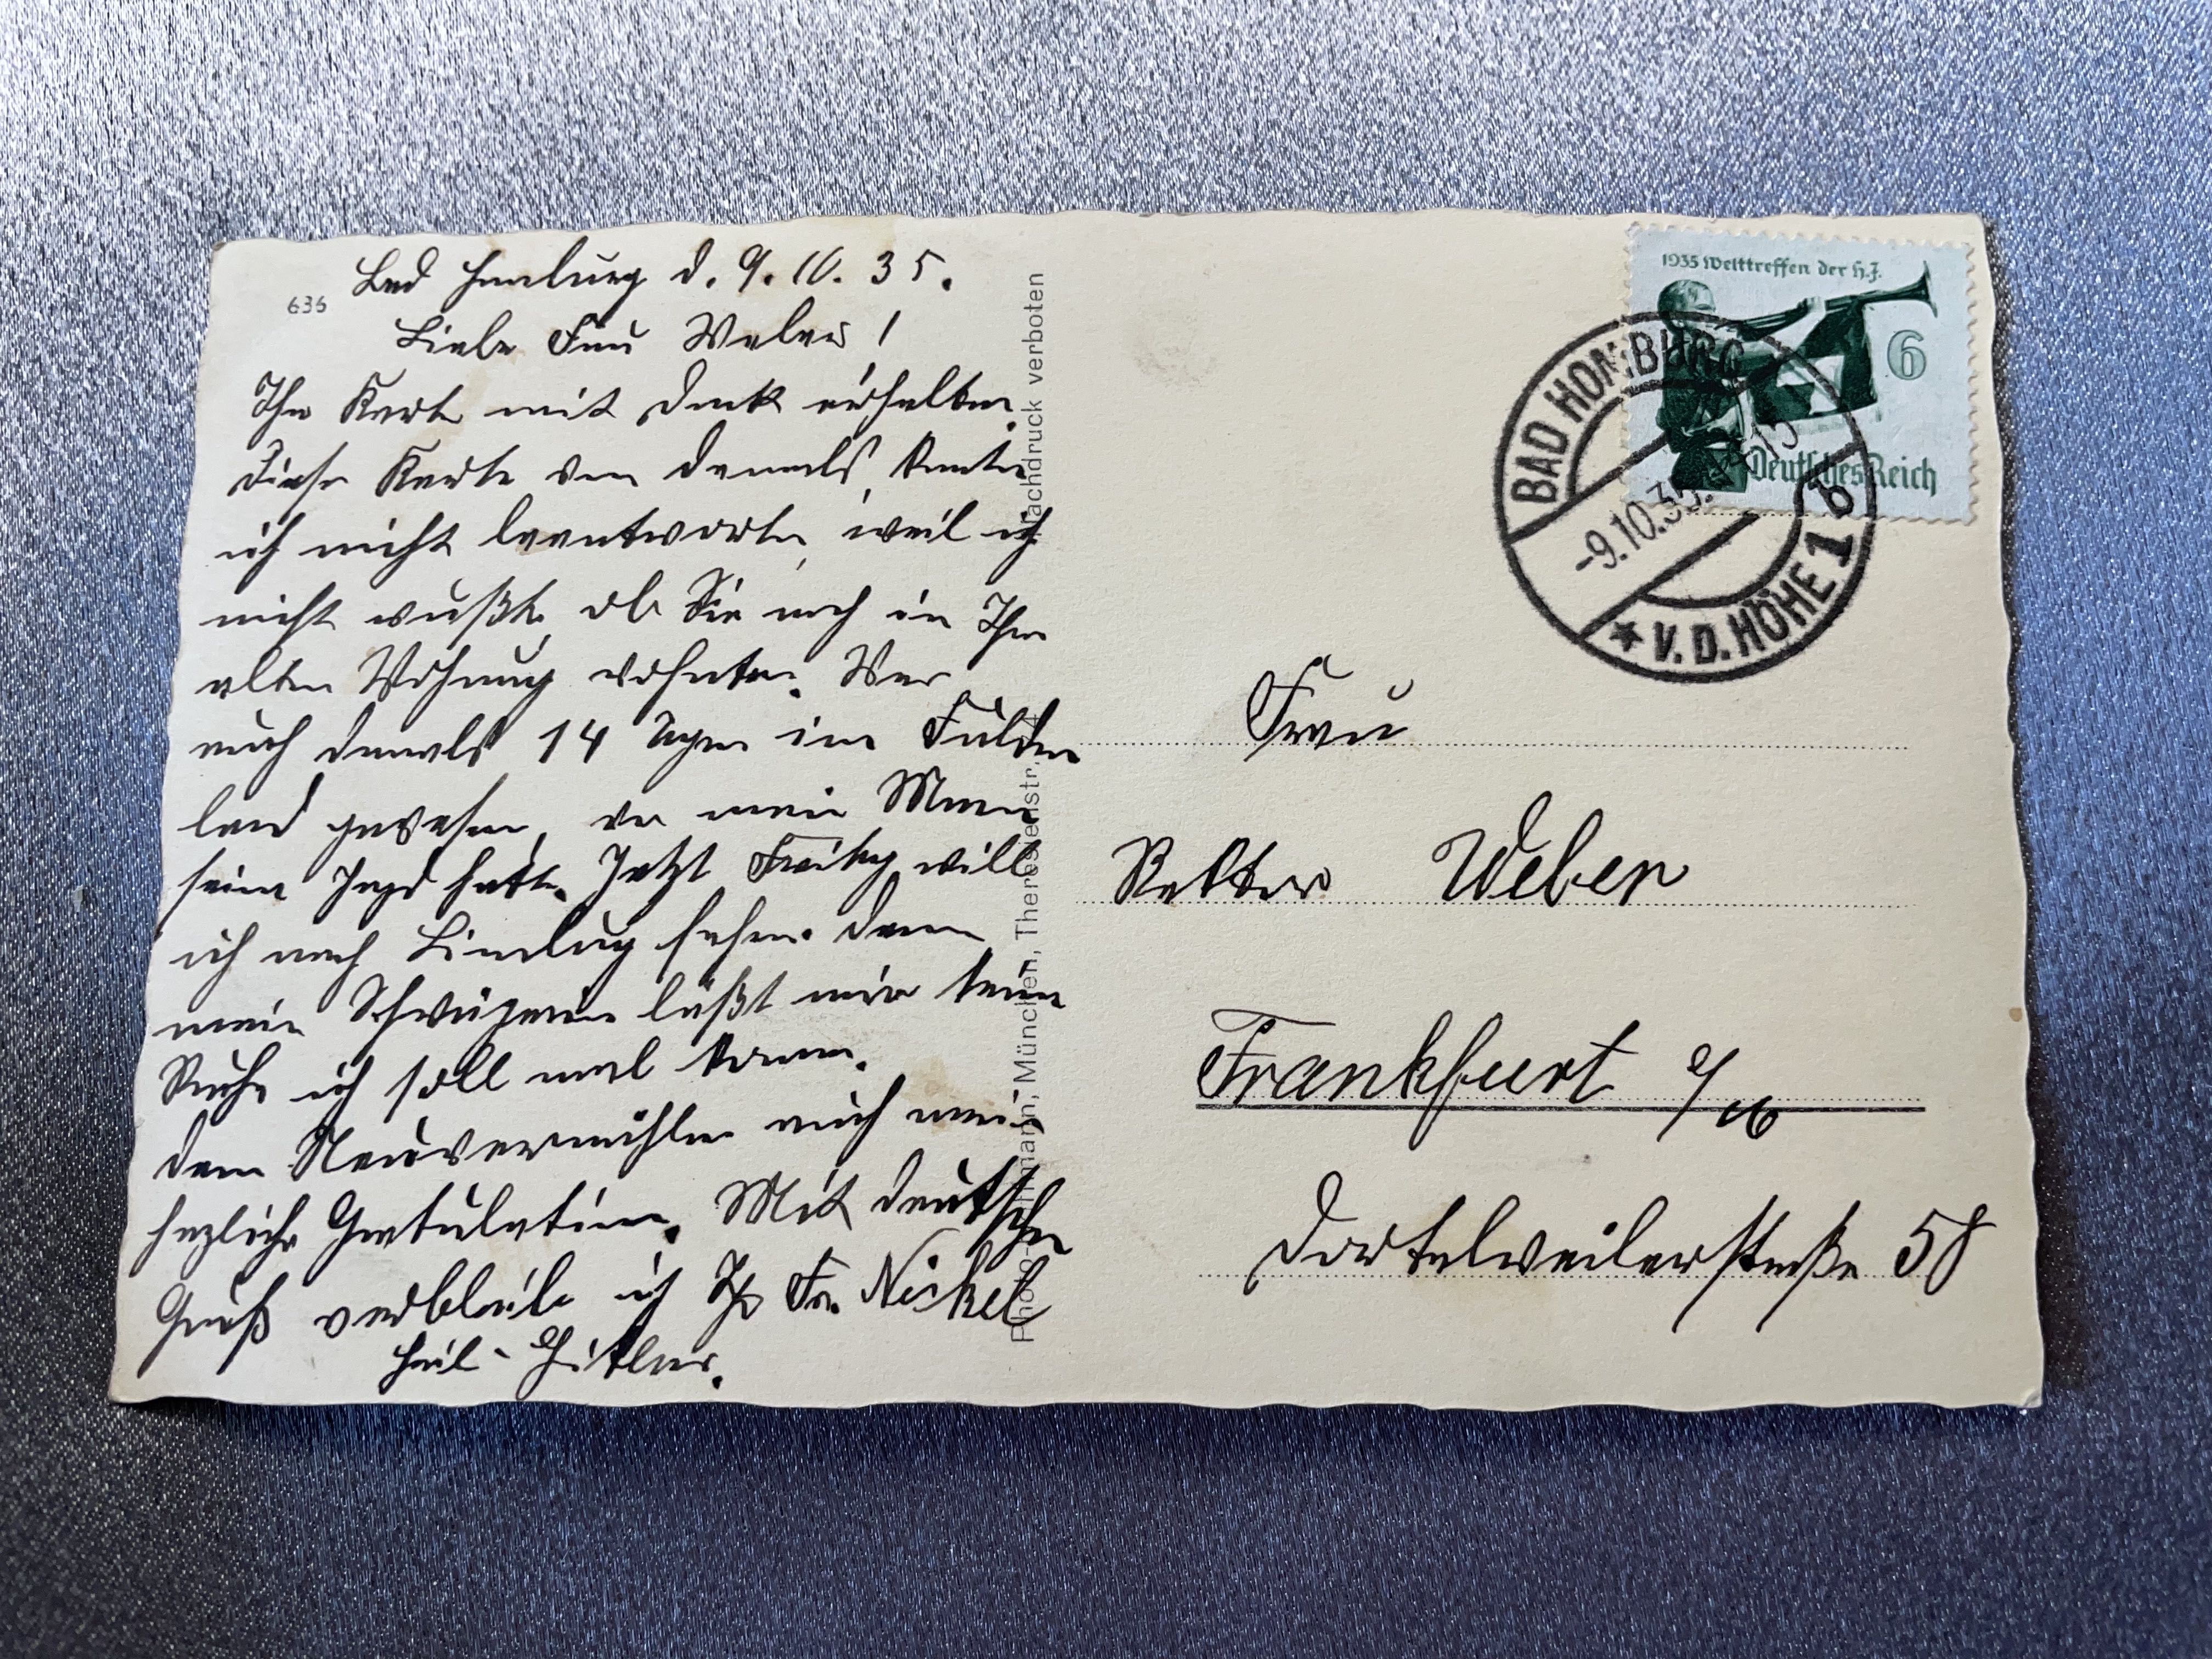 636
Bad Homburg d. 9. 10. 35.
Liebe Frau Weber!
Ihre Karte mit Dank erhalten.
Diese Karte von damals, konnte
ich nicht beantworten, weil ich
nicht wußte, ob Sie noch in Ihrer
alten Wohnung wohnten. War
auch damals 14 Tagen im Fulder
land gewesen, wo mein Mann
seine Jagd hatte. Jetzt Freitag will
ich nach Limburg fahren. denn
meine Schwägerin läßt mir keine
Ruhe ich soll mal kommen.
dem Neuvermählten auch meine
herzliche Gratulation. Mit deutschen
Gruß verbleibe ich Ihr Fr. Nickel
Heil-Hitler.
Nachdruck verboten
München, Theresienstr.
1935 Welttreffen der H.J.
6
Deutsches Reich
BAD HOMBURG
-9.10.35.
* V.D. HÖHE 1 b
Frau
Weber
Frankfurt a/M
Dortelweilerstraße 58